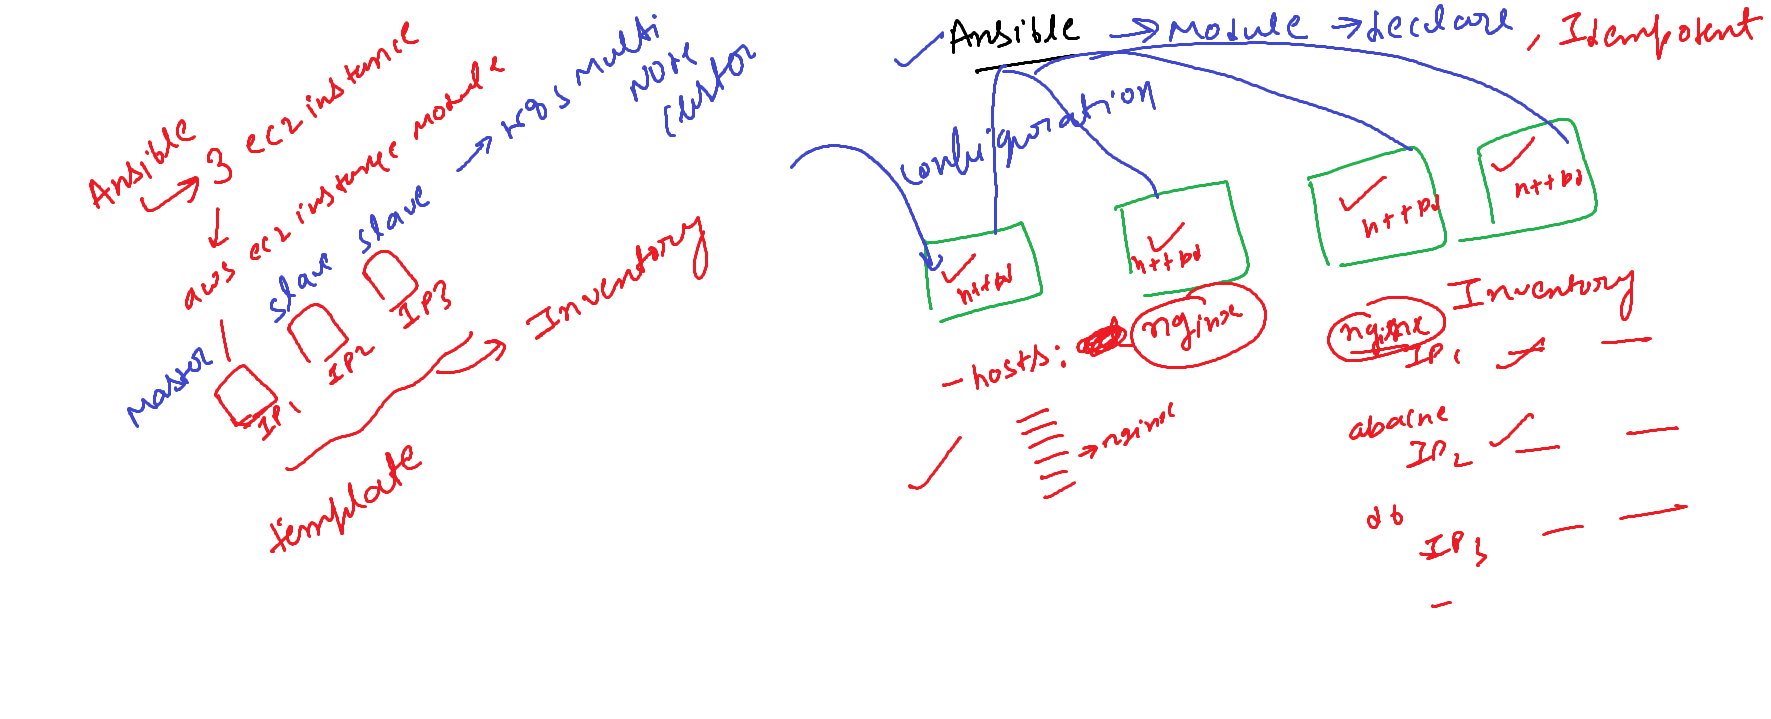 Ansible
3 ec2 instance
aws ec2 instance module
k8s multi
Node
master
slave
slave
IP1
IP2
IP3
template
Inventory
Ansible → Module → declare, Idempotent
configuration
httpd
httpd
httpd
httpd
- hosts: nginx
→ nginx
Inventory
nginx
IP1
IP2
db
IP3